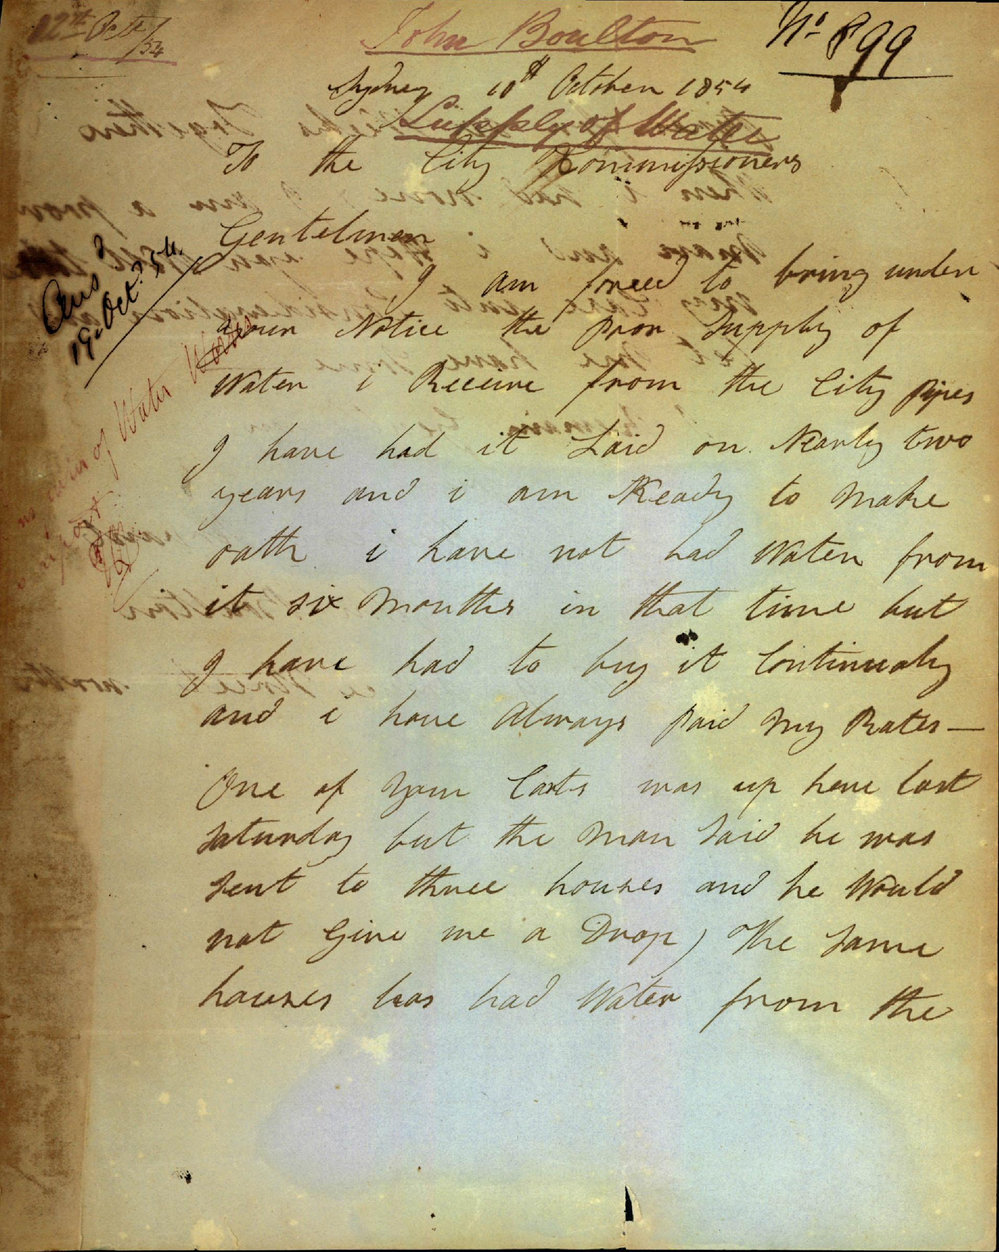 12th Oct/54
John Boulton
No 899
Sydney 10th October 1854
Supply of Water
To the City Commissioners
Gentelmen
I am forced to bring under
your Notice the poor Supply of
Water i Receive from the City pipes
I have had it Laid on Nearly two
years and i am Ready to Make
oath i have not had Water from
it six Months in that time but
I have had to buy it Continualy
and i have Always paid My Rates —
One of your Carts was up here last
Saturday but the Man Said he was
Sent to three houses and he Would
not Give me a Drop) The Same
houses has had Water from the
Ansd
19. Oct. 54.
of Water Works
report